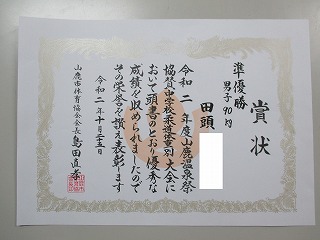 賞状
準優勝
男子90㎏
田頭
令和二年度山鹿温泉祭
協賛中学校柔道体重別大会に
おいて頭書のとおり優秀な
成績を収められましたので
その栄誉を讃え表彰します
令和二年十月二十五日
山鹿市体育協会会長 島田直孝